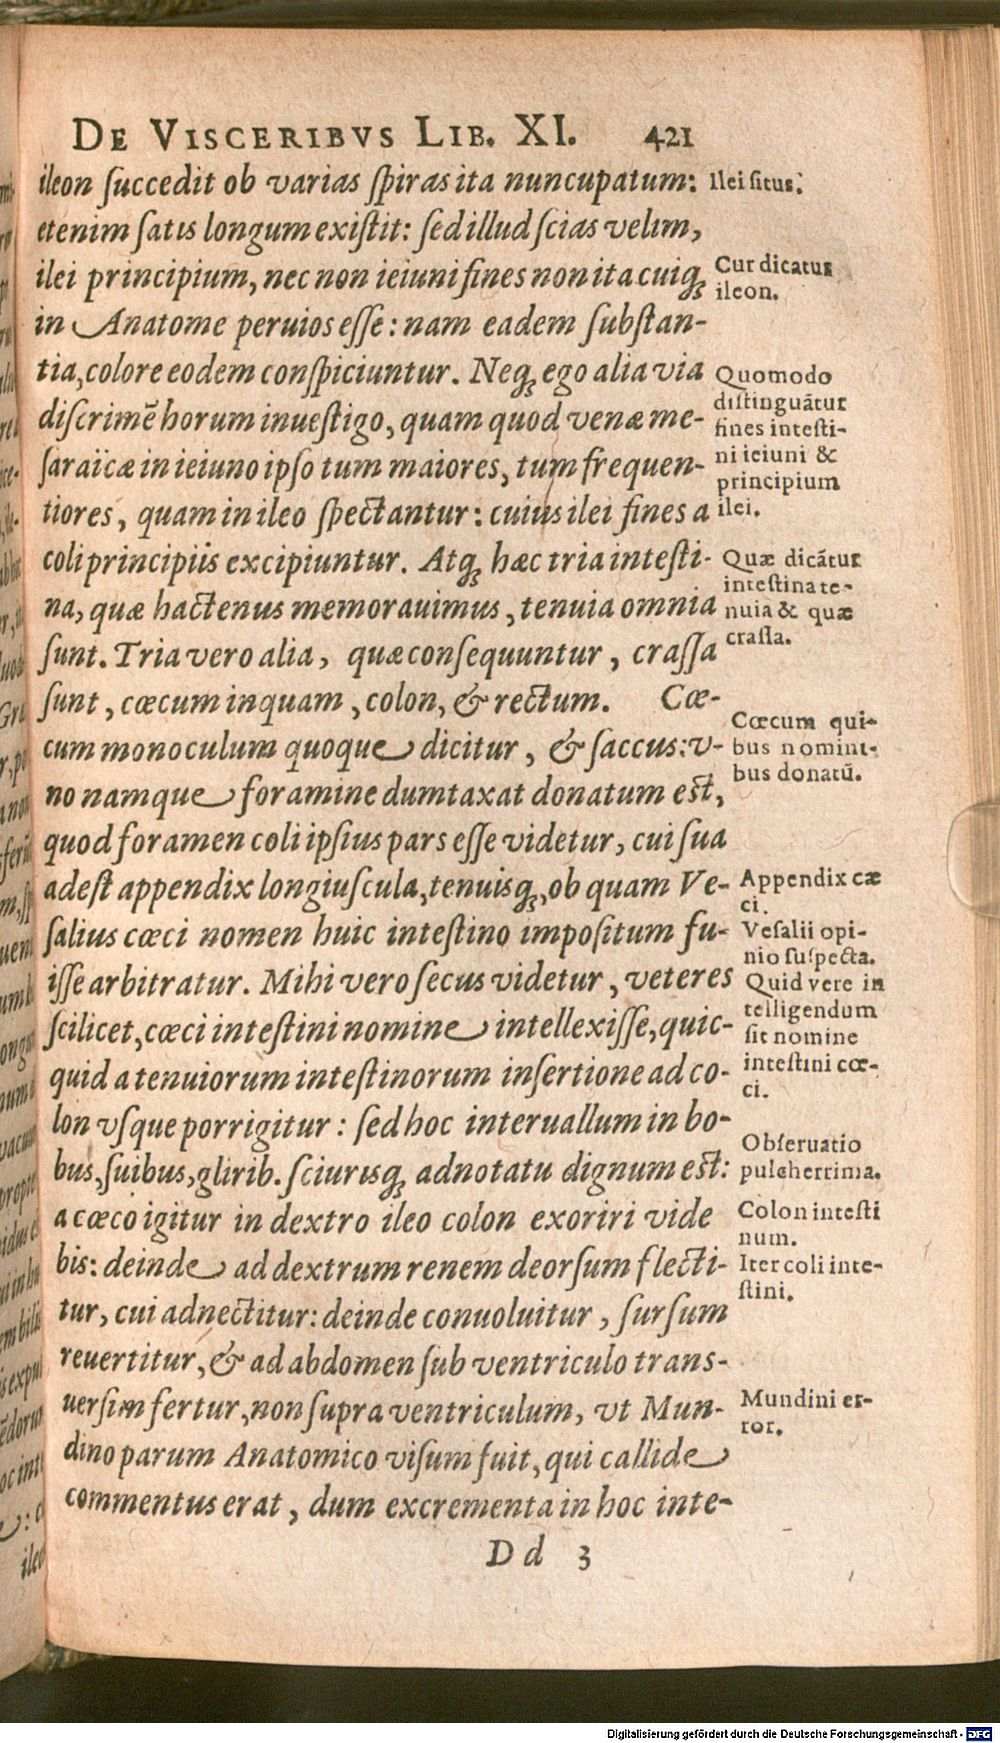 DE VISCERIBVS LIB. XI. 421
ileon ſuccedit ob varias ſpiras ita nuncupatum:
etenim ſatis longum exiſtit: ſed illud ſcias velim,
ilei principium, nec non ieiuni fines non ita cuiqꝫ
in Anatome peruios eſſe: nam eadem ſubſtan-
tia, colore eodem conſpiciuntur. Neqꝫ ego alia via
diſcrimẽ horum inueſtigo, quam quod venæ me-
ſaraicæ in ieiuno ipſo tum maiores, tum frequen-
tiores, quam in ileo ſpectantur: cuius ilei fines a
coli principiis excipiuntur. Atqꝫ hæc tria inteſti-
na, quæ hactenus memorauimus, tenuia omnia
ſunt. Tria vero alia, quæ conſequuntur, craſſa
ſunt, cœcum inquam, colon, & rectum. Cœ-
cum monoculum quoque dicitur, & ſaccus: v-
no namque foramine dumtaxat donatum est,
quod foramen coli ipſius pars eſſe videtur, cui ſua
adeſt appendix longiuſcula, tenuisqꝫ, ob quam Ve-
ſalius cœci nomen huic inteſtino impoſitum fu-
iſſe arbitratur. Mihi vero ſecus videtur, veteres
ſcilicet, cœci inteſtini nomine intellexiſſe, quic-
quid a tenuiorum inteſtinorum inſertione ad co-
lon vſque porrigitur: ſed hoc interuallum in bo-
bus, ſuibus, glirib. ſciurisqꝫ adnotatu dignum est:
a cœco igitur in dextro ileo colon exoriri vide
bis: deinde ad dextrum renem deorſum flecti-
tur, cui adnectitur: deinde conuoluitur, ſurſum
reuertitur, & ad abdomen ſub ventriculo trans-
uerſim fertur, non ſupra ventriculum, vt Mun-
dino parum Anatomico viſum fuit, qui callide
commentus erat, dum excrementa in hoc inte-
Dd 3
Ilei ſitus.
Cur dicatur
ileon.
Quomodo
diſtinguãtur
fines inteſti-
ni ieiuni &
principium
ilei.
Quæ dicãtur
inteſtina te-
nuia & quæ
craſſa.
Cœcum qui-
bus nomini-
bus donatũ.
Appendix cæ
ci.
Veſalii opi-
nio ſuſpecta.
Quid vere in
telligendum
ſit nomine
inteſtini cœ-
ci.
Obſeruatio
pulcherrima.
Colon inteſti
num.
Iter coli inte-
ſtini.
Mundini er-
ror.
Digitalisierung gefördert durch die Deutsche Forschungsgemeinschaft - DFG